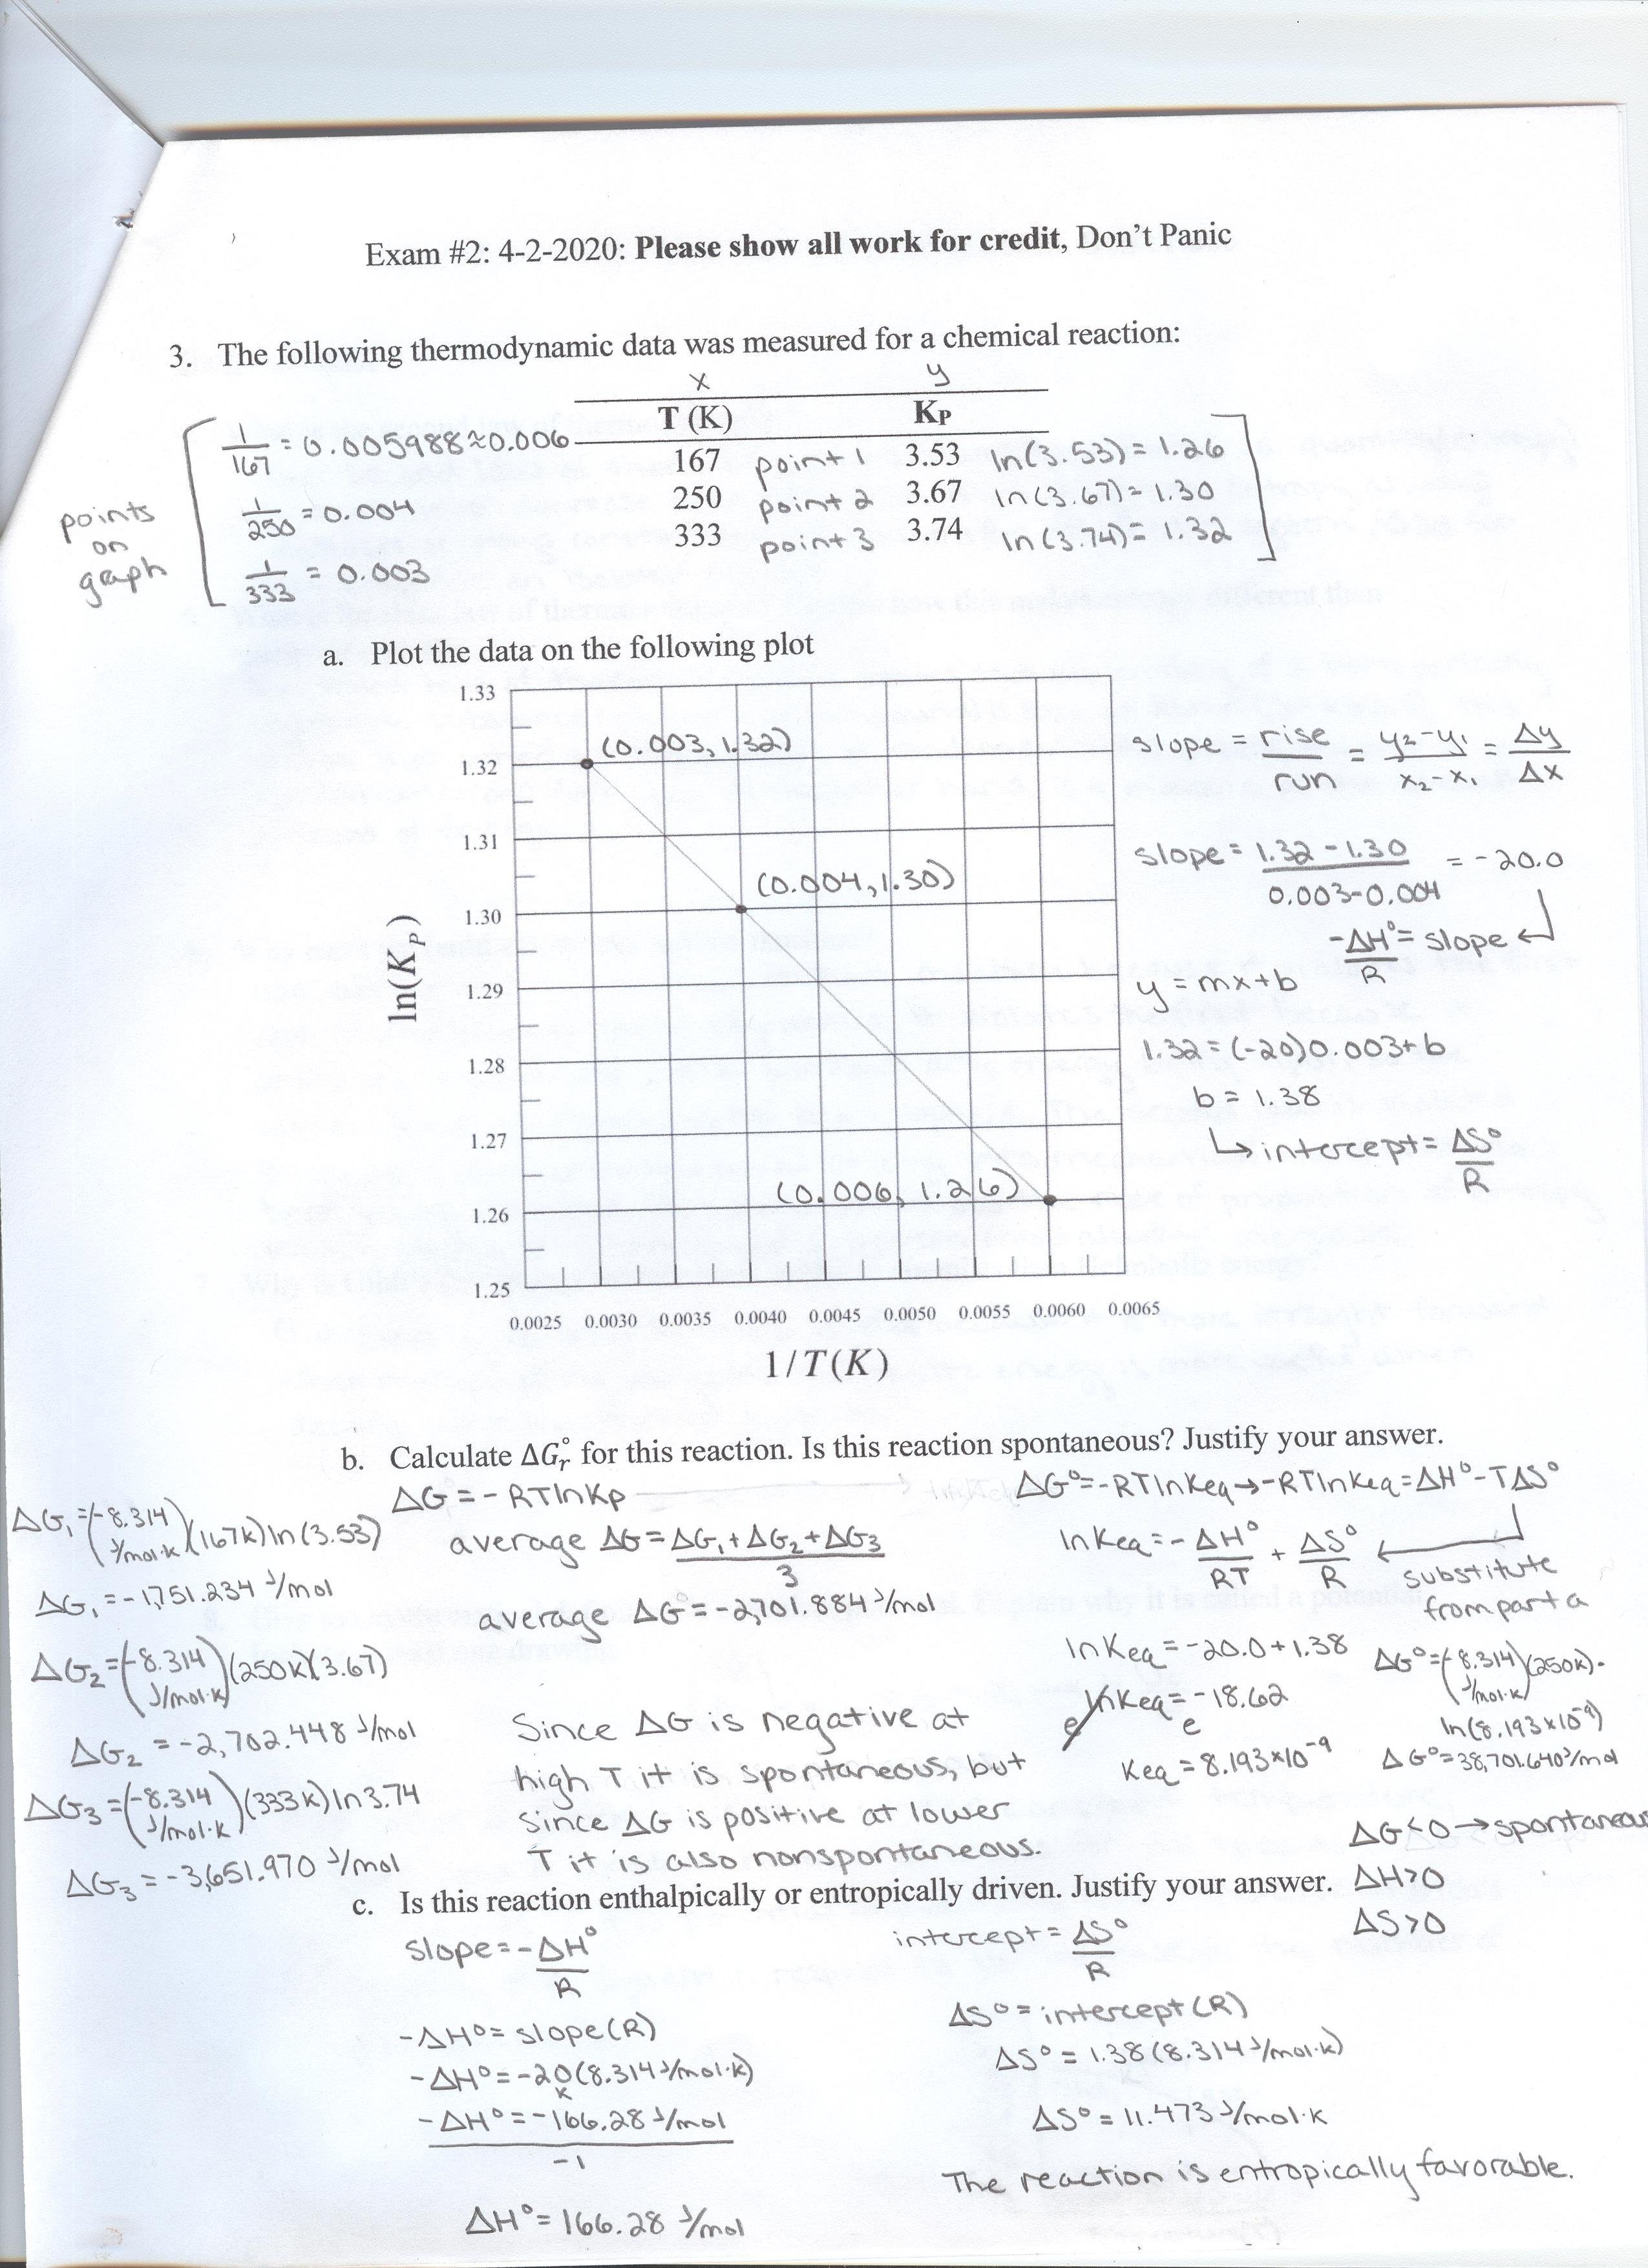 Exam #2: 4-2-2020: Please show all work for credit, Don't Panic
3. The following thermodynamic data was measured for a chemical reaction:
x y
T (K) KP
1/167 = 0.005988 ≈ 0.006
167 point 1 3.53 ln(3.53) = 1.26
1/250 = 0.004
250 point 2 3.67 ln(3.67) = 1.30
1/333 = 0.003
333 point 3 3.74 ln(3.74) = 1.32
points
on
graph
a. Plot the data on the following plot
1.33
1.32
1.31
1.30
1.29
1.28
1.27
1.26
1.25
ln(KP)
(0.003, 1.32)
(0.004, 1.30)
(0.006, 1.26)
0.0025 0.0030 0.0035 0.0040 0.0045 0.0050 0.0055 0.0060 0.0065
1/T(K)
slope = rise/run = y₂-y₁/x₂-x₁ = Δy/Δx
slope = 1.32 - 1.30/0.003-0.004 = -20.0
-ΔH°/R = slope
y = mx+b
1.32 = (-20)0.003+b
b = 1.38
↳ intercept = ΔS°/R
b. Calculate ΔG°r for this reaction. Is this reaction spontaneous? Justify your answer.
ΔG = -RTlnKp
average ΔG = ΔG₁ + ΔG₂ + ΔG₃/3
average ΔG° = -2,701.884 J/mol
ΔG₁ = (-8.314 J/mol·K)(167K) ln(3.53)
ΔG₁ = -1,751.234 J/mol
ΔG₂ = (-8.314 J/mol·K)(250K)(3.67)
ΔG₂ = -2,702.448 J/mol
ΔG₃ = (-8.314 J/mol·K)(333K) ln 3.74
ΔG₃ = -3,651.970 J/mol
Since ΔG is negative at
high T it is spontaneous, but
since ΔG is positive at lower
T it is also nonspontaneous.
ΔG° = -RTlnKeq → -RTlnKeq = ΔH° - TΔS°
lnKeq = -ΔH°/RT + ΔS°/R
substitute
from part a
lnKeq = -20.0 + 1.38
lnKeq = -18.62
e e
Keq = 8.193 x 10⁻⁹
ΔG° = (-8.314 J/mol·K)(250K)·
ln(8.193 x 10⁻⁹)
ΔG° = 38,701.640 J/mol
ΔG < 0 → spontaneous
ΔH > 0
ΔS > 0
c. Is this reaction enthalpically or entropically driven. Justify your answer.
slope = -ΔH°/R
-ΔH° = slope(R)
-ΔH° = -20 K (8.314 J/mol·K)
-ΔH° = -166.28 J/mol
-1
ΔH° = 166.28 J/mol
intercept = ΔS°/R
ΔS° = intercept(R)
ΔS° = 1.38(8.314 J/mol·K)
ΔS° = 11.473 J/mol·K
The reaction is entropically favorable.